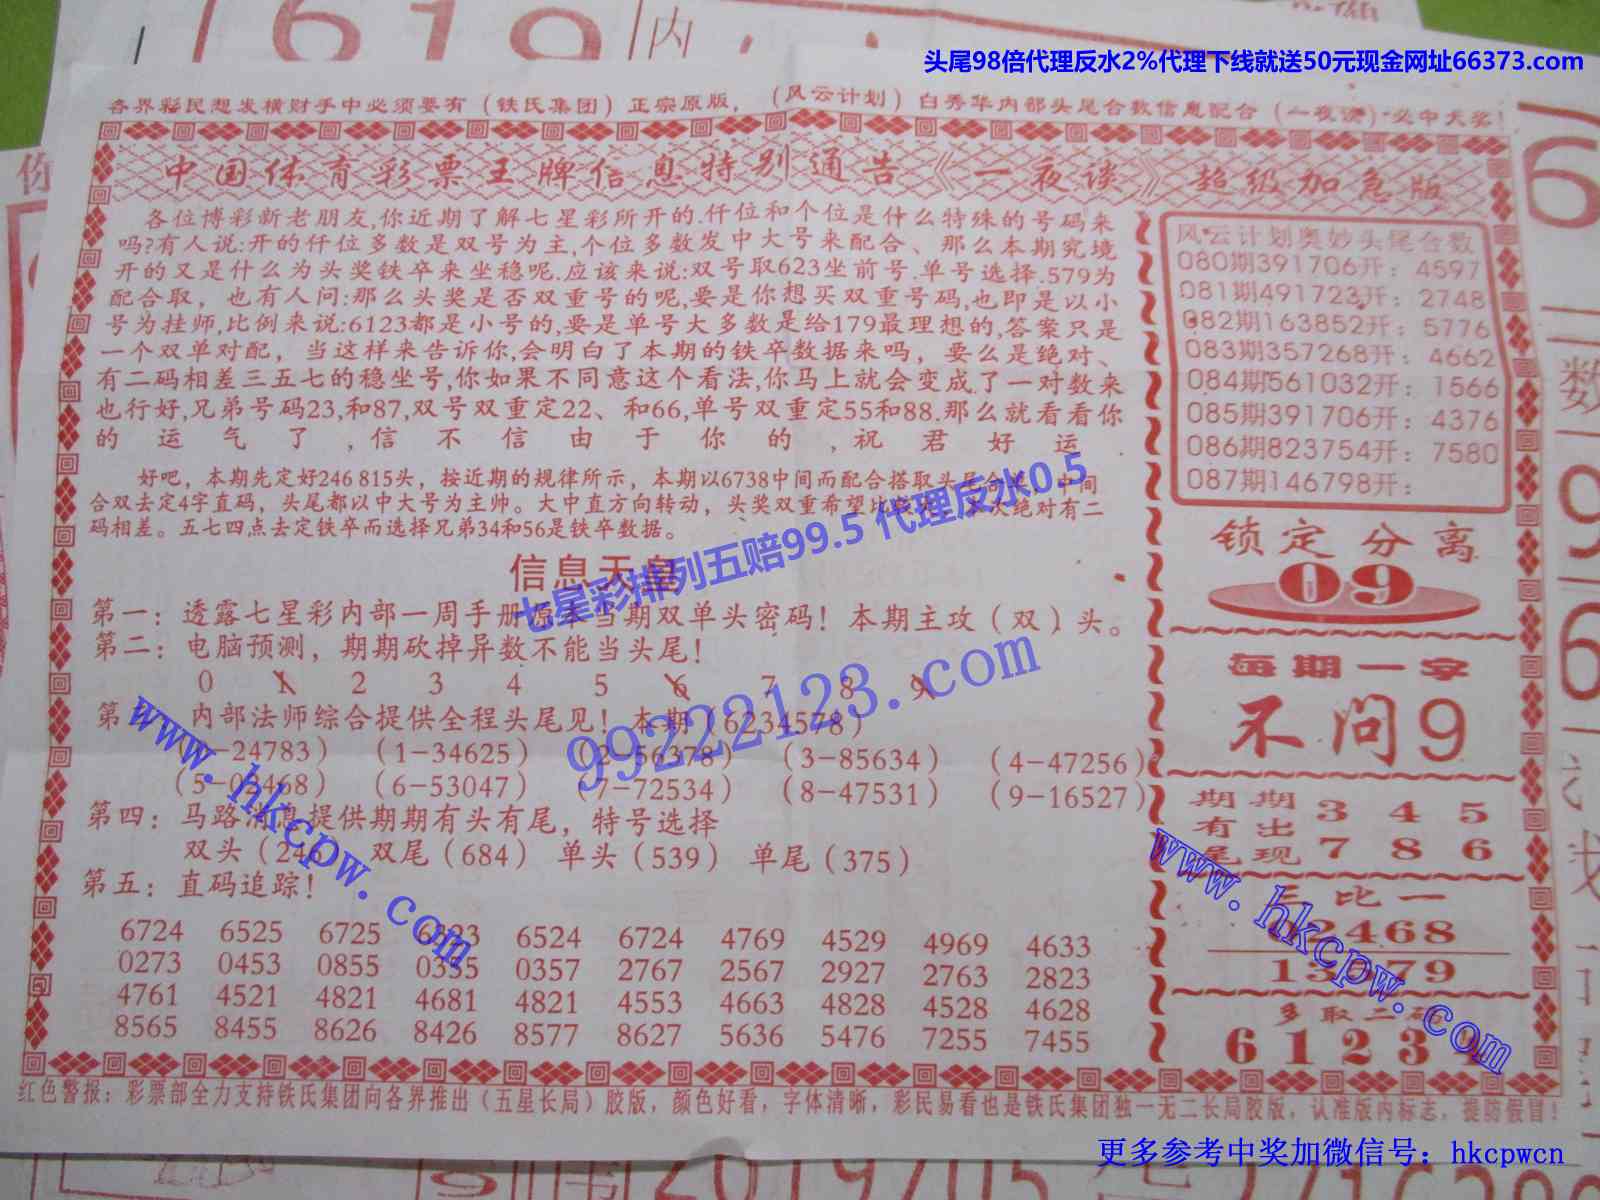 619 内
头尾98倍代理反水2%代理下线就送50元现金网址66373.com
各界彩民想发横财手中必须要有（铁氏集团）正宗原版，（风云计划）白秀华内部头尾合数信息配合（一夜谈）必中大奖！
中国体育彩票王牌信息特别通告《一夜谈》超级加急版
各位博彩新老朋友,你近期了解七星彩所开的.仟位和个位是什么特殊的号码来
吗?有人说:开的仟位多数是双号为主,个位多数发中大号来配合、那么本期究境
开的又是什么为头奖铁卒来坐稳呢.应该来说:双号取623坐前号.单号选择.579为
配合取，也有人问:那么头奖是否双重号的呢,要是你想买双重号码,也即是以小
号为挂师,比例来说:6123都是小号的,要是单号大多数是给179最理想的,答案只是
一个双单对配，当这样来告诉你,会明白了本期的铁卒数据来吗，要么是绝对、
有二码相差三五七的稳坐号,你如果不同意这个看法,你马上就会变成了一对数来
也行好,兄弟号码23,和87,双号双重定22、和66,单号双重定55和88.那么就看看你
的运气了,信不信由于你的,祝君好运
好吧，本期先定好246 815头，按近期的规律所示，本期以6738中间而配合搭取头尾合奖，中间
合双去定4字直码，头尾都以中大号为主帅。大中直方向转动，头奖双重希望比较 次绝对有二
码相差。五七四点去定铁卒而选择兄弟34和56是铁卒数据。
七星彩排列五赔99.5 代理反水0.5
信息天皇
第一：透露七星彩内部一周手册原本当期双单头密码！本期主攻（双）头。
第二：电脑预测，期期砍掉异数不能当头尾！
0 1 2 3 4 5 6 7 8 9
第 内部法师综合提供全程头尾见！本期（6234578）
-24783） （1-34625） （2-56378） （3-85634） （4-47256）
（5-02468） （6-53047） （7-72534） （8-47531） （9-16527）
99222123.com
www.hkcpw.com
第四：马路消息提供期期有头有尾，特号选择
双头（246 双尾（684） 单头（539） 单尾（375）
第五：直码追踪！
6724 6525 6725 6524 6724 4769 4529 4969 4633
0273 0453 0855 0355 0357 2767 2567 2927 2763 2823
4761 4521 4821 4681 4821 4553 4663 4828 4528 4628
8565 8455 8626 8426 8577 8627 5636 5476 7255 7455
风云计划奥妙头尾合数
080期391706开：4597
081期491723开：2748
082期163852开：5776
083期357268开：4662
084期561032开：1566
085期391706开：4376
086期823754开：7580
087期146798开：
锁定分离
09
每期一字
不问9
期期 3 4 5
有出
尾现 7 8 6
www.hkcpw.com
三比一
02468
13579
多取二码
6 1 2 3 4
红色警报：彩票部全力支持铁氏集团向各界推出（五星长局）胶版，颜色好看，字体清晰，彩民易看也是铁氏集团独一无二长局胶版，认准版内标志，提防假冒！
更多参考中奖加微信号：hkcpwcn